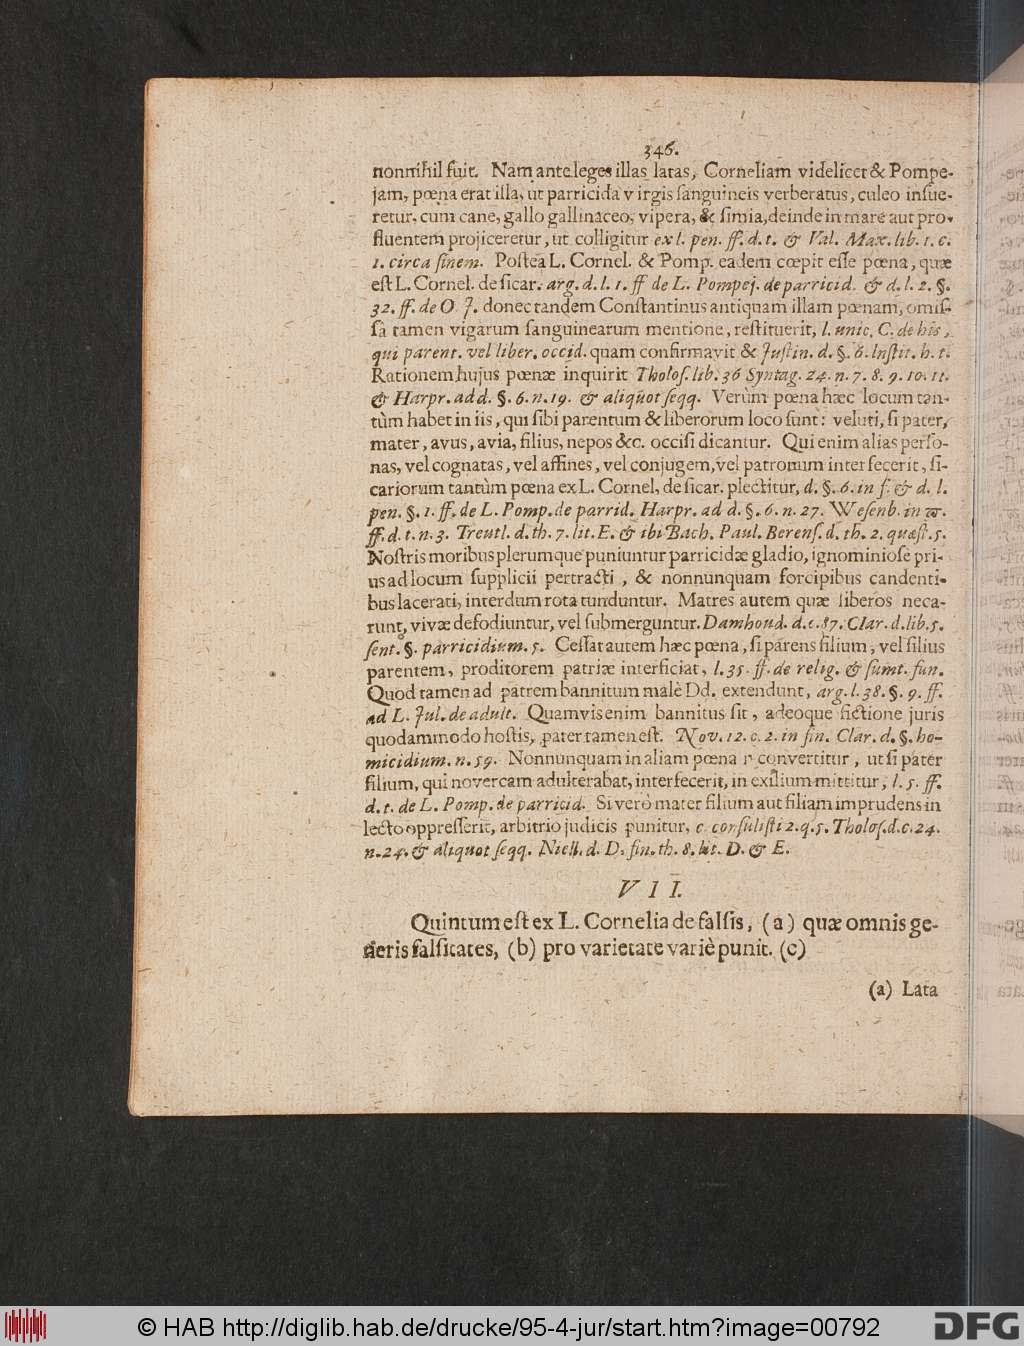 346.
nonnihil fuit. Nam ante leges illas latas, Corneliam videlicet & Pompe-
jam, pœna erat illa, ut parricida virgis sanguineis verberatus, culeo insue-
retur, cum cane, gallo gallinaceo, vipera, & simia, deinde in mare aut pro-
fluentem projiceretur, ut colligitur ex l. pen. ff. d. t. & Val. Max. lib. 1. c.
1. circa finem. Postea L. Cornel. & Pomp. eadem cœpit esse pœna, quæ
est L. Cornel. de sicar. arg. d. l. 1. ff de L. Pompej. de parricid. & d. l. 2. §.
32. ff. de O J. donec tandem Constantinus antiquam illam pœnam, omis-
sâ tamen vigarum sanguinearum mentione, restituerit, l. unic. C. de his,
qui parent. vel liber. occid. quam confirmavit & Justin. d. §. 6. Instit. h. t.
Rationem hujus pœnæ inquirit Tholos. lib. 36 Syntag. 24. n. 7. 8. 9. 10. 11.
& Harpr. ad d. §. 6. n. 19. & aliquot seqq. Verùm pœna hæc locum tan-
tùm habet in iis, qui sibi parentum & liberorum loco sunt: veluti, si pater,
mater, avus, avia, filius, nepos &c. occisi dicantur. Qui enim alias perso-
nas, vel cognatas, vel affines, vel conjugem, vel patronum interfecerit, si-
cariorum tantùm pœna ex L. Cornel, de sicar. plectitur, d. §. 6. in f. & d. l.
pen. §. 1. ff. de L. Pomp. de parrid. Harpr. ad d. §. 6. n. 27. Wesenb. in ϖ.
ff. d. t. n. 3. Treutl. d. th. 7. lit. E. & ibi Bach. Paul. Berens. d. th. 2. quæst. 5.
Nostris moribus plerumque puniuntur parricidæ gladio, ignominiose pri-
us ad locum supplicii pertracti, & nonnunquam forcipibus candenti-
bus lacerati, interdum rota tunduntur. Matres autem quæ liberos neca-
runt, vivæ defodiuntur, vel submerguntur. Damhoud. d. c. 87. Clar. d. lib. 5.
sent. §. parricidium. 5. Cessat autem hæc pœna, si parens filium, vel filius
parentem, proditorem patriæ interficiat, l. 35. ff. de relig. & sumt. fun.
Quod tamen ad patrem bannitum malè Dd. extendunt, arg. l. 38. §. 9. ff.
ad L. Jul. de adult. Quamvis enim bannitus sit, adeoque fictione juris
quodammodo hostis, pater tamen est. Nov. 12. c. 2. in fin. Clar. d. §. ho-
micidium. n. 59. Nonnunquam in aliam pœna r convertitur, ut si pater
filium, qui novercam adulterabat, interfecerit, in exilium mittitur, l. 5. ff.
d. t. de L. Pomp. de parricid. Si verò mater filium aut filiam imprudens in
lecto oppresserit, arbitrio judicis punitur, c. consulisti 2. q. 5. Tholos. d. c. 24.
n. 24. & aliquot seqq. Niell. d. D. fin. th. 8. lit. D. & E.
VII.
Quintum est ex L. Cornelia de falsis, (a) quæ omnis ge-
neris falsitates, (b) pro varietate variè punit. (c)
(a) Lata
© HAB http://diglib.hab.de/drucke/95-4-jur/start.htm?image=00792
DFG